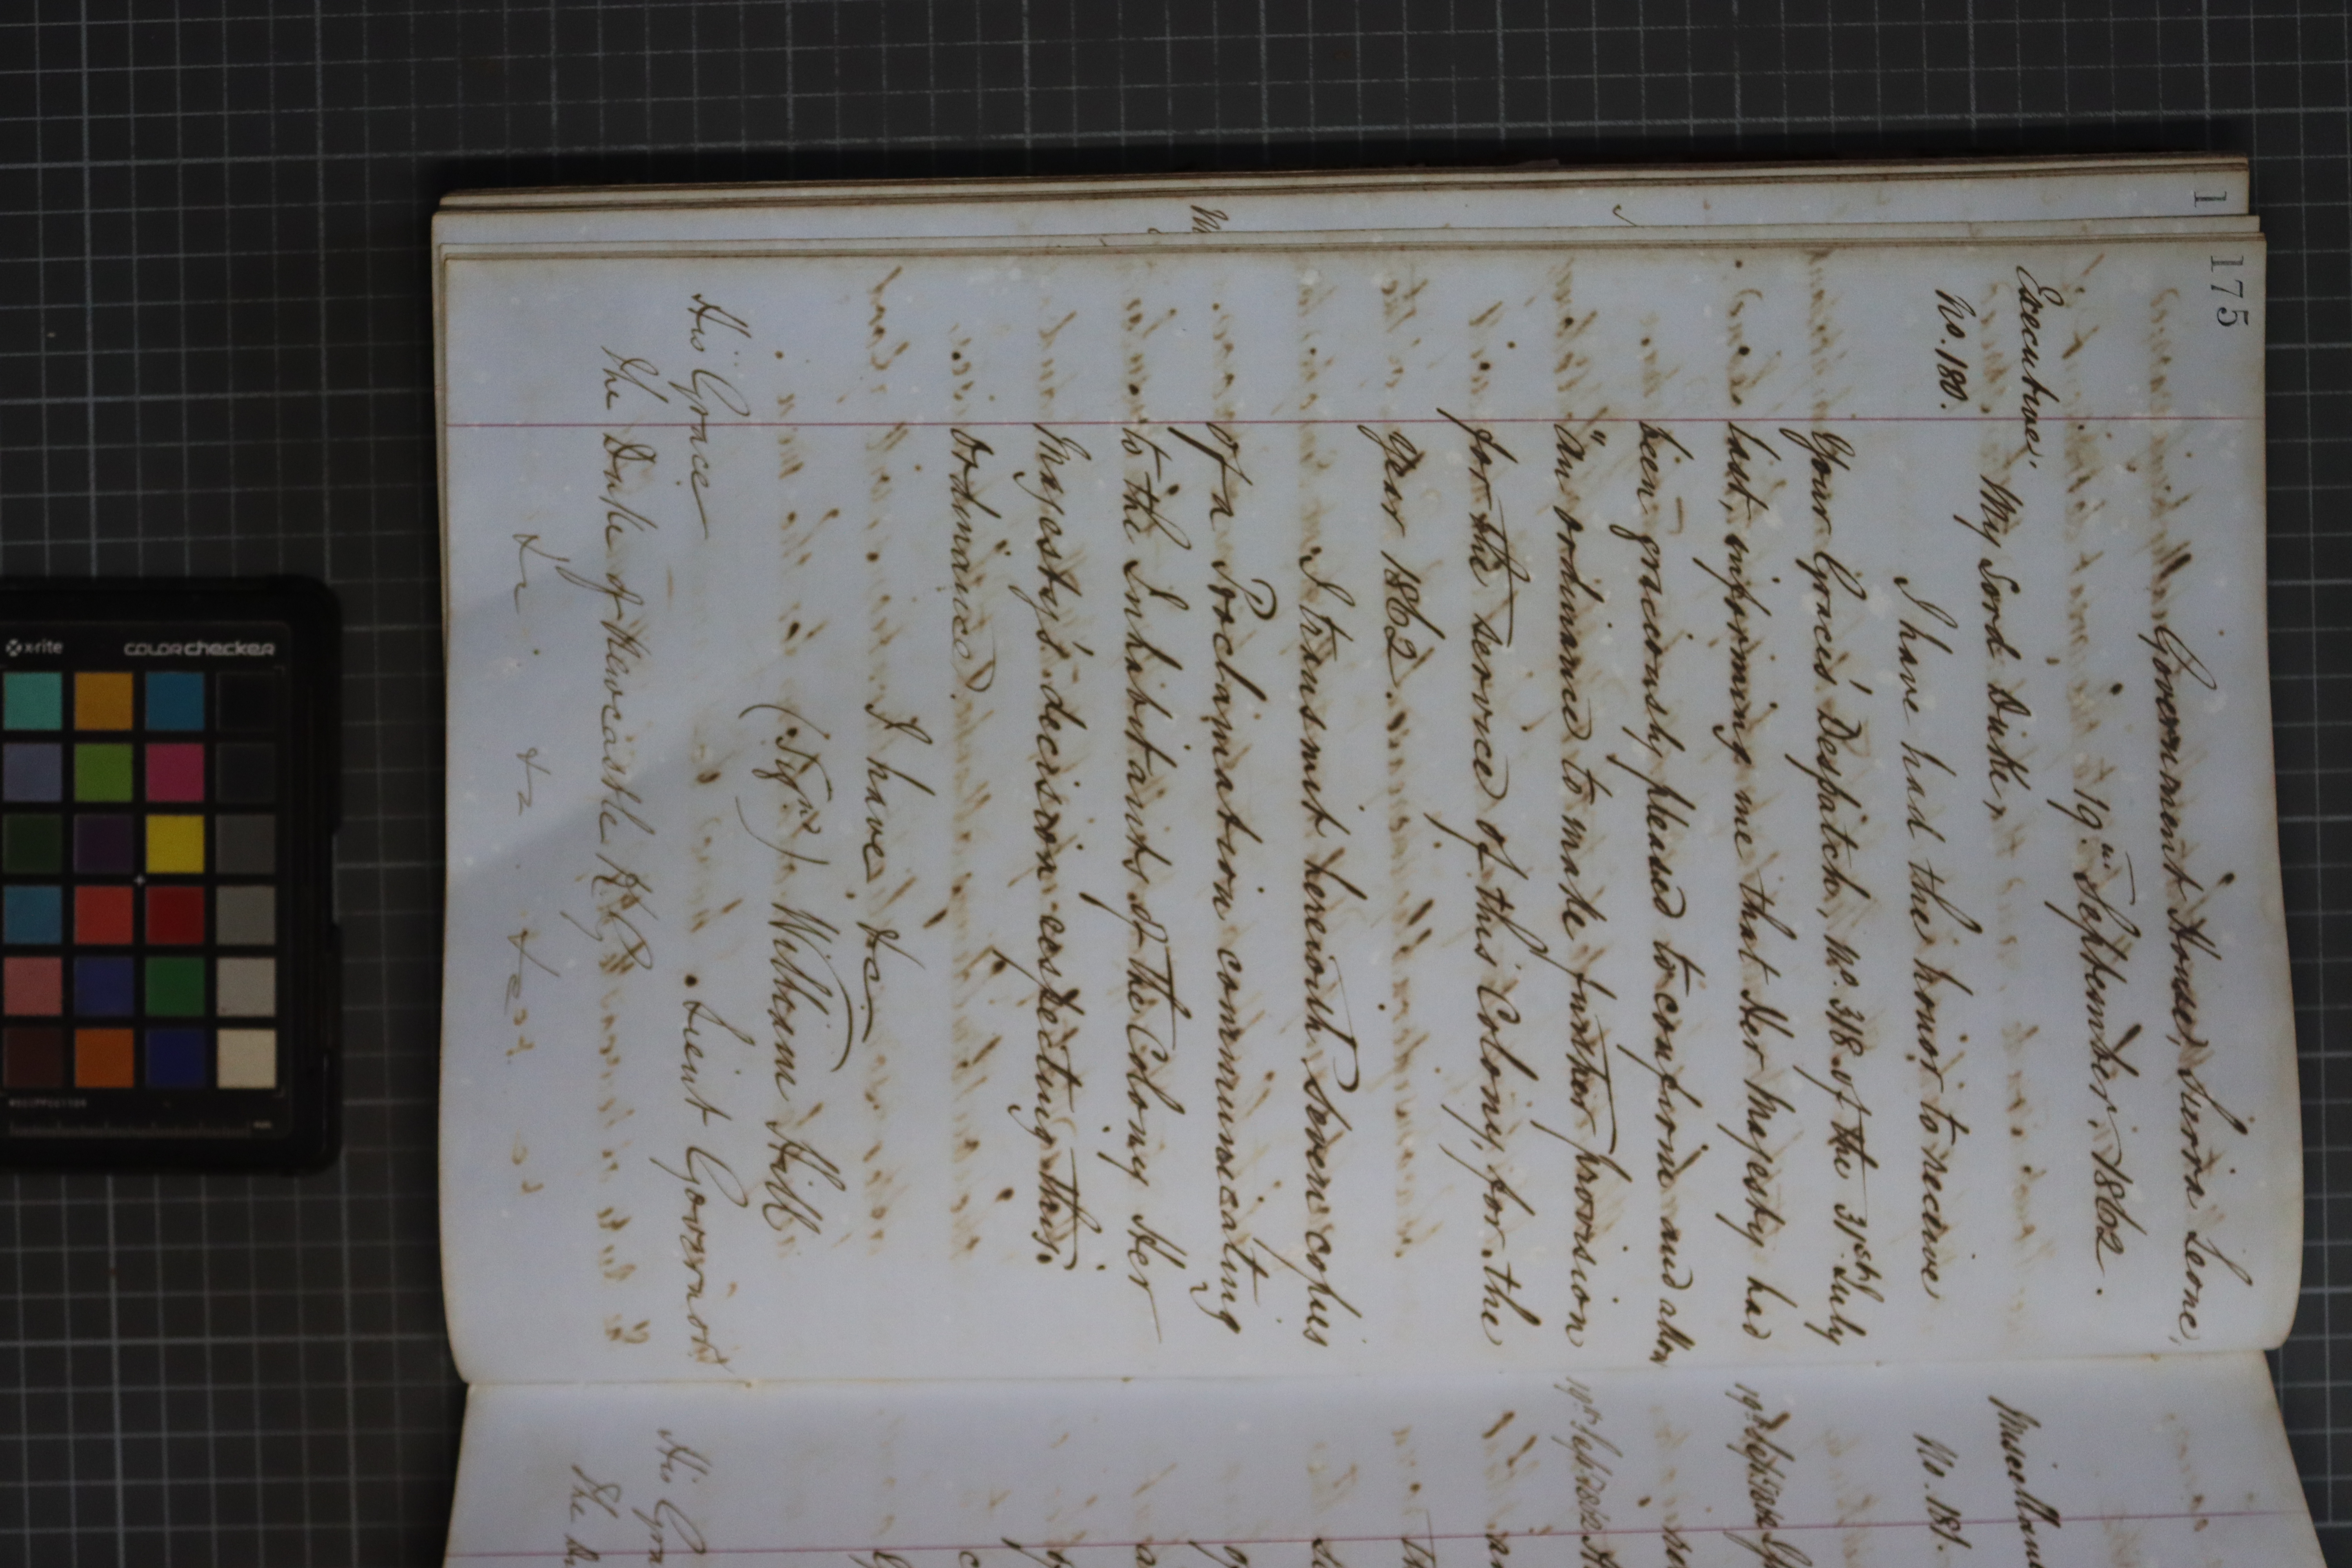 175
Government House, Sierra Leone,
19th September 1862.
Executive
No. 180.
My Lord Duke,
I have had the honor to receive
Your Grace's Despatch, No. 318 of the 31st July
last, informing me that Her Majesty had
been graciously pleased to confirm and allow
"An ordinance to make further provision
for the service of this Colony, for the
year 1862.
I transmit herewith Seven copies
of a Proclamation communicating
to the Inhabitants of the Colony Her
Majesty's decision respecting this
ordinance.
I have &c
(Sign'd) William Hill
Lieut Governor
His Grace
The Duke of Newcastle K.G
&c &c &c
1
Miscellane
No. 181.
His Gra
The Du
x-rite
colorchecker